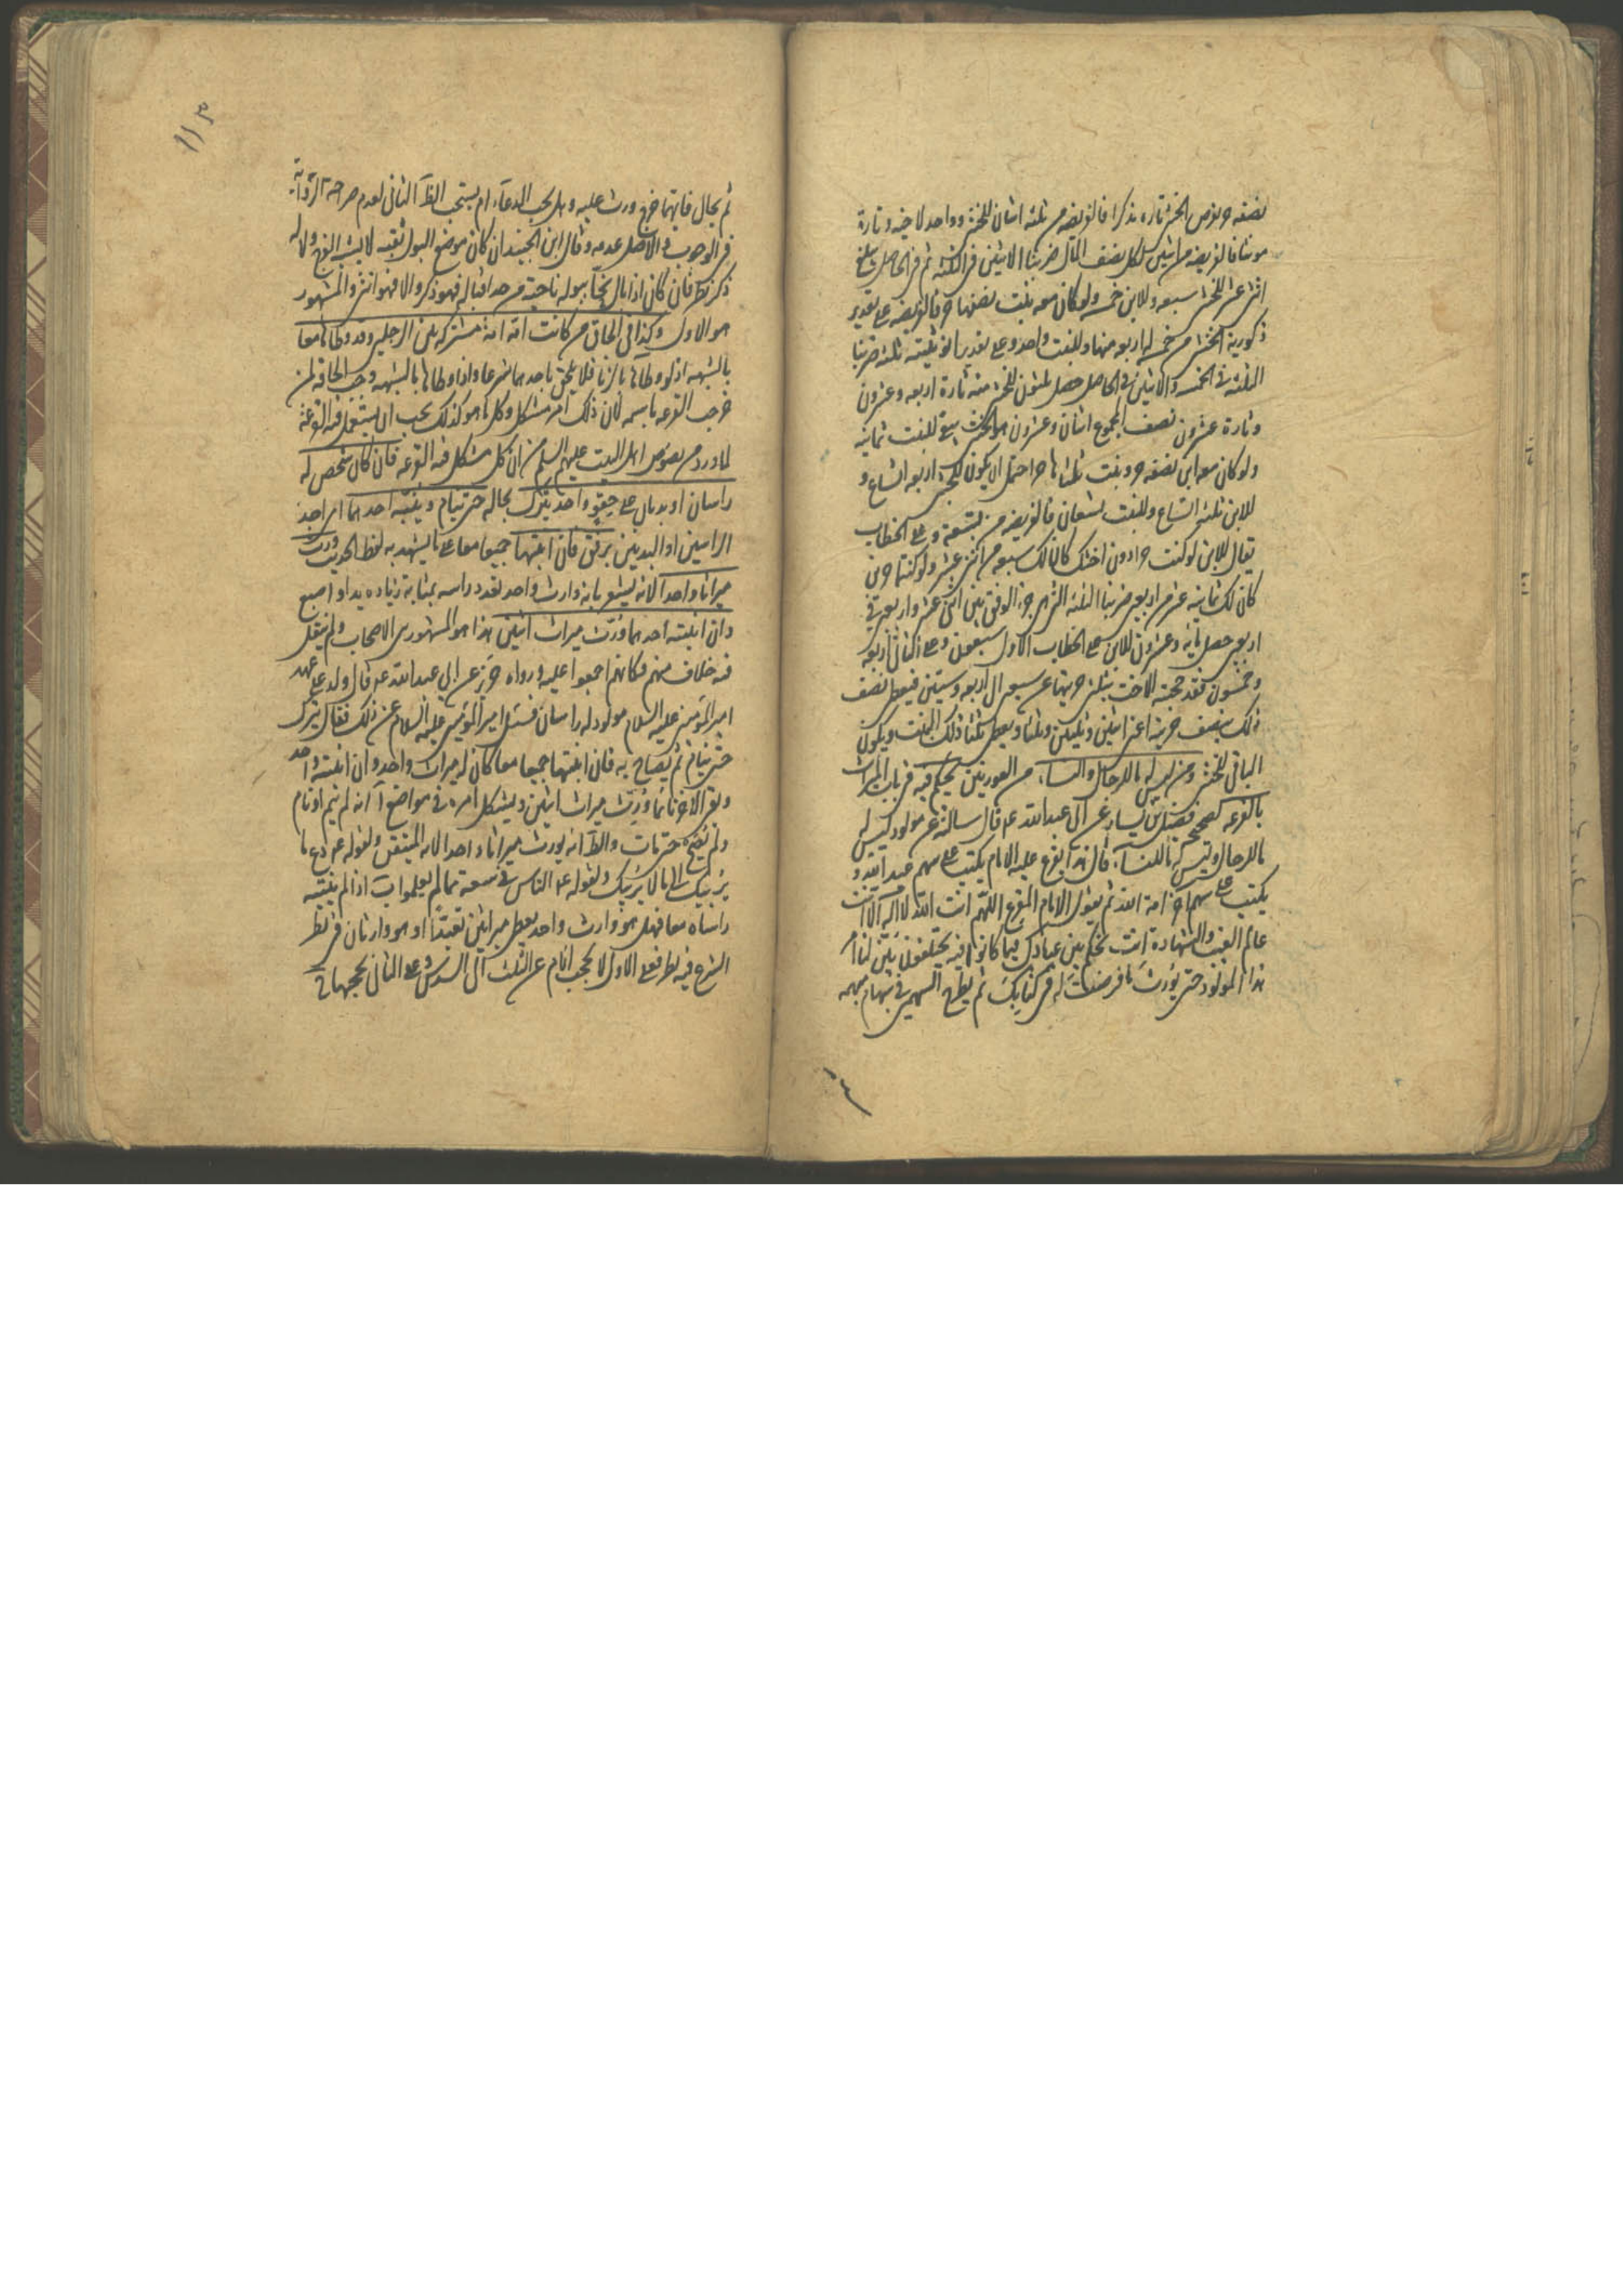 نصفه حر نفرض الخنثى تاره ذكرا فالفريضه من ثلثه اثنان للخنثى وواحد لاخيه وتارة
مؤنثا فالفريضه من اثنين لكل نصف المال ضربنا الاثنين فى الثلثه ثم فى الحاصل
اثنى عشر للخنثى سبعه وللابن خمسه ولو كان معه بنت نصفها حر فالفريضه على تقدير
ذكورية الخنثى من خمسه له اربعه منها وللبنت واحد وعلى تقدير انوثيته ثلثه ضربنا
الثلثه فى الخمسه والاثنين فى الحاصل حصل ثلثون للخنثى منه تارة اربعه وعشرون
وتارة عشرون نصف المجموع اثنان وعشرون هو للخنثى يبقى للبنت ثمانيه
ولو كان معه ابن نصفه حر وبنت ثلثاها حر احتمل ان يكون للخنثى اربعه اتساع و
للابن ثلثه اتساع وللبنت تسعان فالفريضه من تسعة وعلى الخطاب
يقال للابن لو كنت حرا دون اختك كان لك سبعه من اثنى عشر ولو كنتما حرين
كان لك ثمانيه عشر من اربعين ضربنا الثلثه التى هى جزء الوفق بين اثنى عشر واربعين فى
اربعين حصل مائه وعشرون للابن على الخطاب الاول سبعون وعلى الثانى اربعه
وخمسون فقد حجبته الاخت بثلثى حريتها عن سبعين الى اربعه وستين فيعطى نصف
ذلك بنصف حريته اعنى اثنين وثلثين وثلثا ويعطى ثلثا ذلك البنت ويكون
الباقى للخنثى ومن ليس له ما للرجال والنساء من العورتين يحكم فيه فى باب الميراث
بالقرعه لصحيحة فضيل بن يسار عن ابى عبدالله ع قال سالته عن مولود ليس له
ما للرجال وليس له ما للنساء قال هذا يقرع عليه الامام يكتب على سهم عبد الله و
يكتب على سهم اخر امة الله ثم يقول الامام المقرع اللهم انت الله لا اله الا انت
عالم الغيب والشهادة انت تحكم بين عبادك فيما كانوا فيه يختلفون بين لنا امر
هذا المولود حتى يورث ما فرضت له فى كتابك ثم يطرح السهمين فى سهام مبهمه
١١٣
ثم يجال فايهما خرج ورث عليه وهل يجب الدعاء ام يستحب الظ الثانى لعدم صراحة الرواية
فى الوجوب والاصل عدمه وقال ابن الجنيد ان كان موضع البول ثقبه لا يشبه الفرج ولا له
ذكر نظر فان كان اذا بال نحّا ببوله ناحية من حد اقباله فهو ذكر والا فهو انثى والمشهور
هو الاول وكذا فى الحاق من كانت امه امة مشتركه بين الرجلين وقد وطأها معا
بالشبهه اذ لو وطآها بالزنا فلا يلحق باحدهما شرعا واذا وطاها بالشبهه وجب الحاقه لمن
خرجت القرعه باسمه لان ذلك امر مشكل وكل ما هو كذلك يجب ان يستعمل فيه القرعة
لما ورد من نصوص اهل البيت عليهم السلم من ان كل مشكل فيه القرعه فان كان شخص له
راسان او بدنان على حقو واحد يترك بحاله حتى ينام وينبّه احدهما اى احد
الراسين او البدنين برفق فان انتبها جميعا معا على ما يشهد به لفظ الحديث ورث
ميراثا واحدا لانه يشعر بانه وارث واحد تعدد راسه بمثابة زياده يد او اصبع
وان انتبه احدهما ورّث ميراث اثنين هذا هو المشهور بين الاصحاب ولم ينقل
فيه خلاف منهم فكانهم اجمعوا عليه ورواه حريز عن ابى عبدالله ع قال ولد على عهد
امير المؤمنين عليه السلام مولود له راسان فسئل امير المؤمنين عليه السلام عن ذلك فقال يترك
حتى ينام ثم يصاح به فان انتبها جميعا معا كان له ميراث واحد وان انتبه واحد
وبقى الاخر نائما ورث ميراث اثنين ويشكل امره فى مواضع آ انه لم ينم او نام
ولم يصح حتى مات والظ انه يورث ميراثا واحدا لانه المتيقن ولقوله ع دع ما
يريبك الى ما لا يريبك ولقوله ع الناس فى سعة مما لم يعلموا ب اذا لم ينتبه
راساه معا فهل هو وارث واحد يعطى ميراثين تعبّدا او هو وارثان فى نظر
الشرع فيه نظر فعلى الاول لا يحجب الام عن الثلث الى السدس وعلى الثانى يحجبها